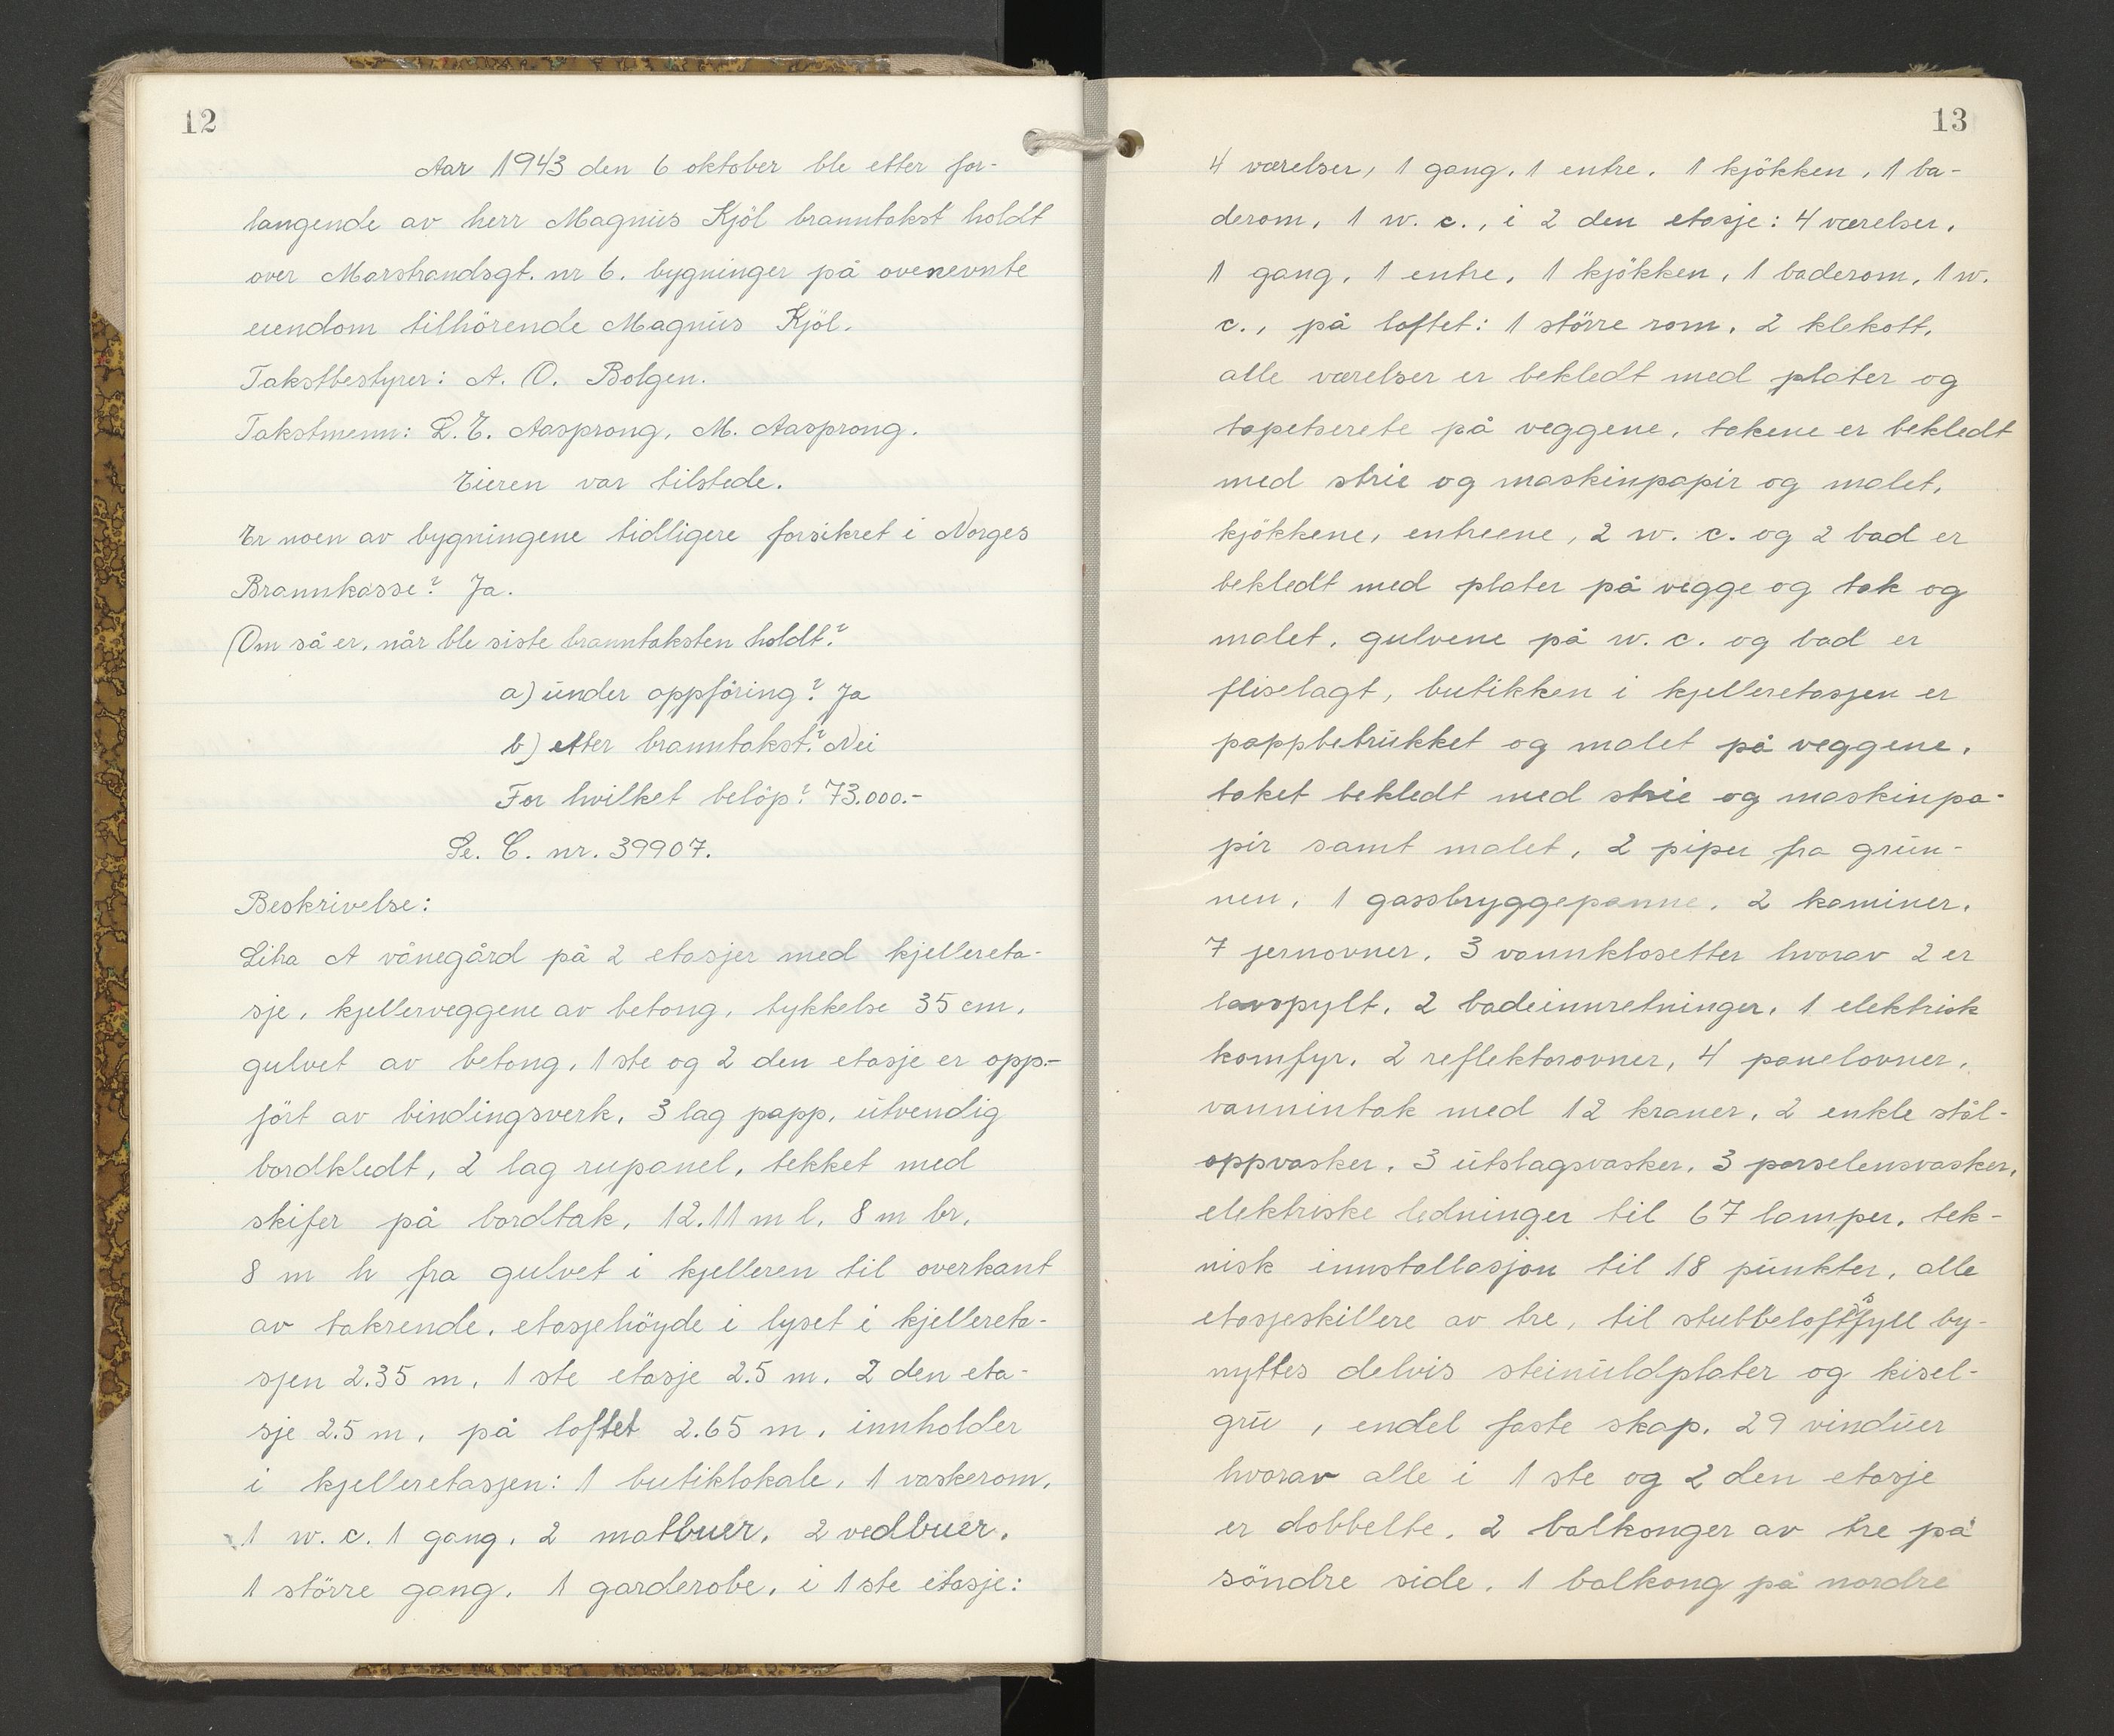 12
Aar 1943 den 6 oktober ble etter for-
langende av herr Magnus Kjöl branntakst holdt
over Marstrandsgt. nr 6. bygninger på ovenevnte
eiendom tilhörende Magnus Kjöl.
Takstbestyrer: A. O. Bolgen.
Takstmenn: L. E. Aasprong, M. Aasprong.
Eieren var tilstede.
Er noen av bygningene tidligere forsikret i Norges
Brannkasse? Ja.
Om så er, når ble siste branntaksten holdt?
a) under oppföring? Ja
b) etter branntakst? Nei
For hvilket belöp? 73.000.-
Le. C. nr. 39907.
Beskrivelse:
Litra A vånegård på 2 etasjer med kjellereta-
sje, kjellerveggene av betong, tykkelse 35 cm,
gulvet av betong, 1 ste og 2 den etasje er opp-
fört av bindingsverk, 3 lag papp, utvendig
bordkledt, 2 lag rupanel, tekket med
skifer på bordtak, 12.11 m l, 8 m br,
8 m h fra gulvet i kjelleren til overkant
av takrende, etasjehöyde i lyset i kjellereta-
sjen 2.35 m, 1 ste etasje 2.5 m, 2 den eta-
sje 2.5 m, på loftet 2.65 m, innholder
i kjelleretasjen: 1 butiklokale, 1 vaskerom,
1 w. c. 1 gang, 2 matbuer, 2 vedbuer,
1 större gang, 1 garderobe, i 1 ste etasje:
13
4 værelser, 1 gang, 1 entre, 1 kjökken, 1 ba-
derom, 1 w. c., i 2 den etasje: 4 værelser,
1 gang, 1 entre, 1 kjökken, 1 baderom, 1 w.
c., på loftet: 1 större rom, 2 klekott,
alle værelser er bekledt med plater og
tapetserete på veggene, takene er bekledt
med strie og maskinpapir og malet,
kjökkene, entreene, 2 w. c. og 2 bad er
bekledt med plater på vegge og tak og
malet, gulvene på w. c. og bad er
fliselagt, butikken i kjelleretasjen er
pappbetrukket og malet på veggene,
taket bekledt med strie og maskinpa-
pir samt malet, 2 piper fra grun-
nen, 1 gassbryggepanne, 2 kaminer,
7 jernovner, 3 vannklosetter hvorav 2 er
lavspylt, 2 badeinnretninger, 1 elektrisk
komfyr, 2 reflektorovner, 4 panelovner,
vanninntak med 12 kraner, 2 enkle stål-
oppvasker, 3 utslagsvasker, 3 porselensvasker,
elektriske ledninger til 67 lamper, tek-
nisk innstallasjon til 18 punkter, alle
etasjeskillere av tre, til stubbeloftsfyll by-
nyttes delvis steinuldplater og kisel-
gru, endel faste skap, 29 vinduer
hvorav alle i 1 ste og 2 den etasje
er dobbelte, 2 balkonger av tre på
söndre side, 1 balkong på nordre